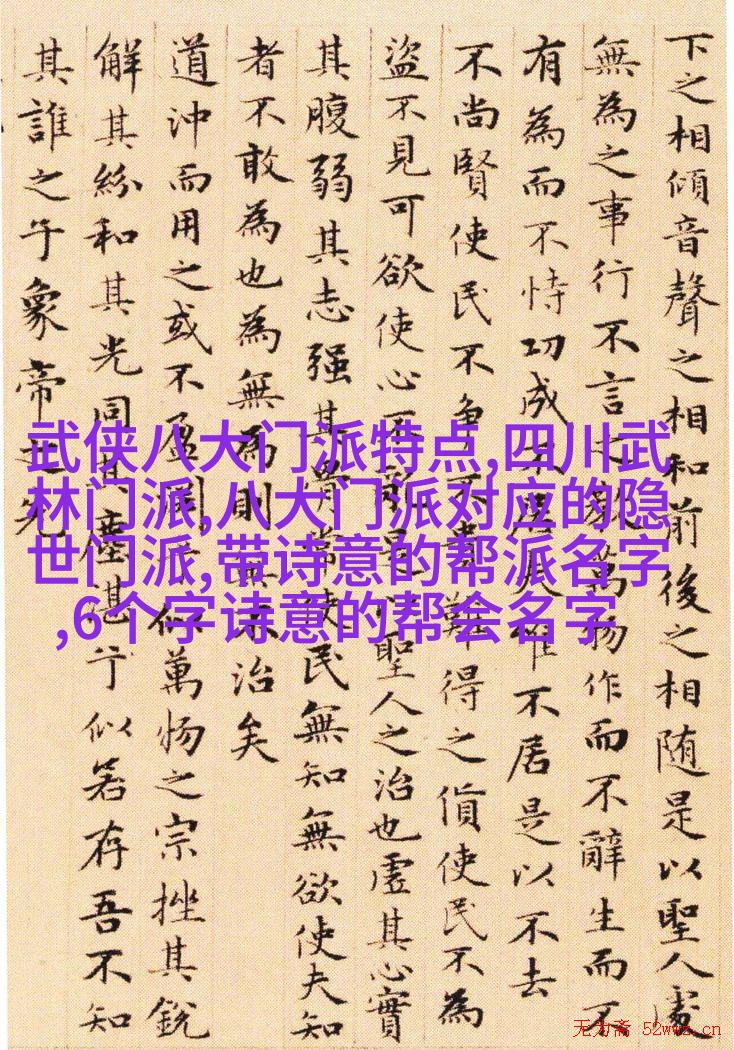 下之相傾音聲之相和前後之相随是以聖人處
無為之事行不言之教萬物作而不辭生而不
有為而不恃功成不居夫唯不居是以不去
不尚賢使民不争不貴難得之貨使民不為
盜不見可欲使心不亂是以聖人之治也虛其心實
其腹弱其志强其骨常使民無知無欲使夫知
者不敢為也為無為則無不治矣
道沖而用之或不盈淵乎似萬物之宗挫其銳
解其紛和其光同其塵湛兮似若存吾不知
其誰之子象帝之先
武侠八大门派特点,四川武
林门派,八大门派对应的隐
世门派,带诗意的帮派名字
,6个字诗意的帮会名字
无为斋 52wwz.cn